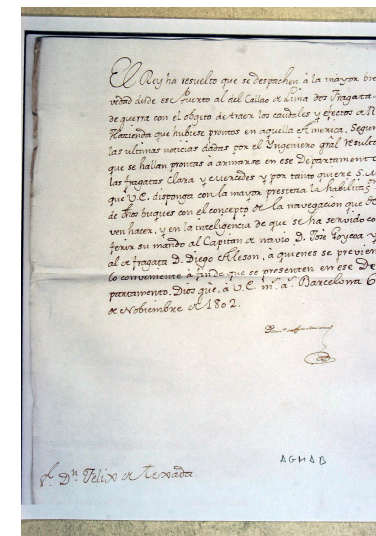 El Rey ha resuelto que se despachen à la mayor bre
vedad desde ese Puerto al del Callao de Lima dos Fragata
de guerra con el objeto de traer los caudales y efectos de R
Hazienda que hubiese prontos en aquella America. Segun
las ultimas noticias dadas por el Yngeniero gral resulto
que se hallan prontas a armarse en ese Departament
las fragatas Clara y Mercedes y por tanto quiere S.M
que V.E. disponga con la mayor presteza la habilitaz
de dhos buques con el concepto de la navegacion que
ven hacer, y en la inteligencia de que se ha servido co
ferir su mando al Capitan de navio D. José Goycoa y
al de fragata D. Diego Aleson, à quienes se previen
lo conveniente à fin de que se presenten en ese De
partamento. Dios güe. à V.E. ms. as. Barcelona 6
de Noviembre de 1802.
AGMAB
Sr. Dn. Felix de Texada.